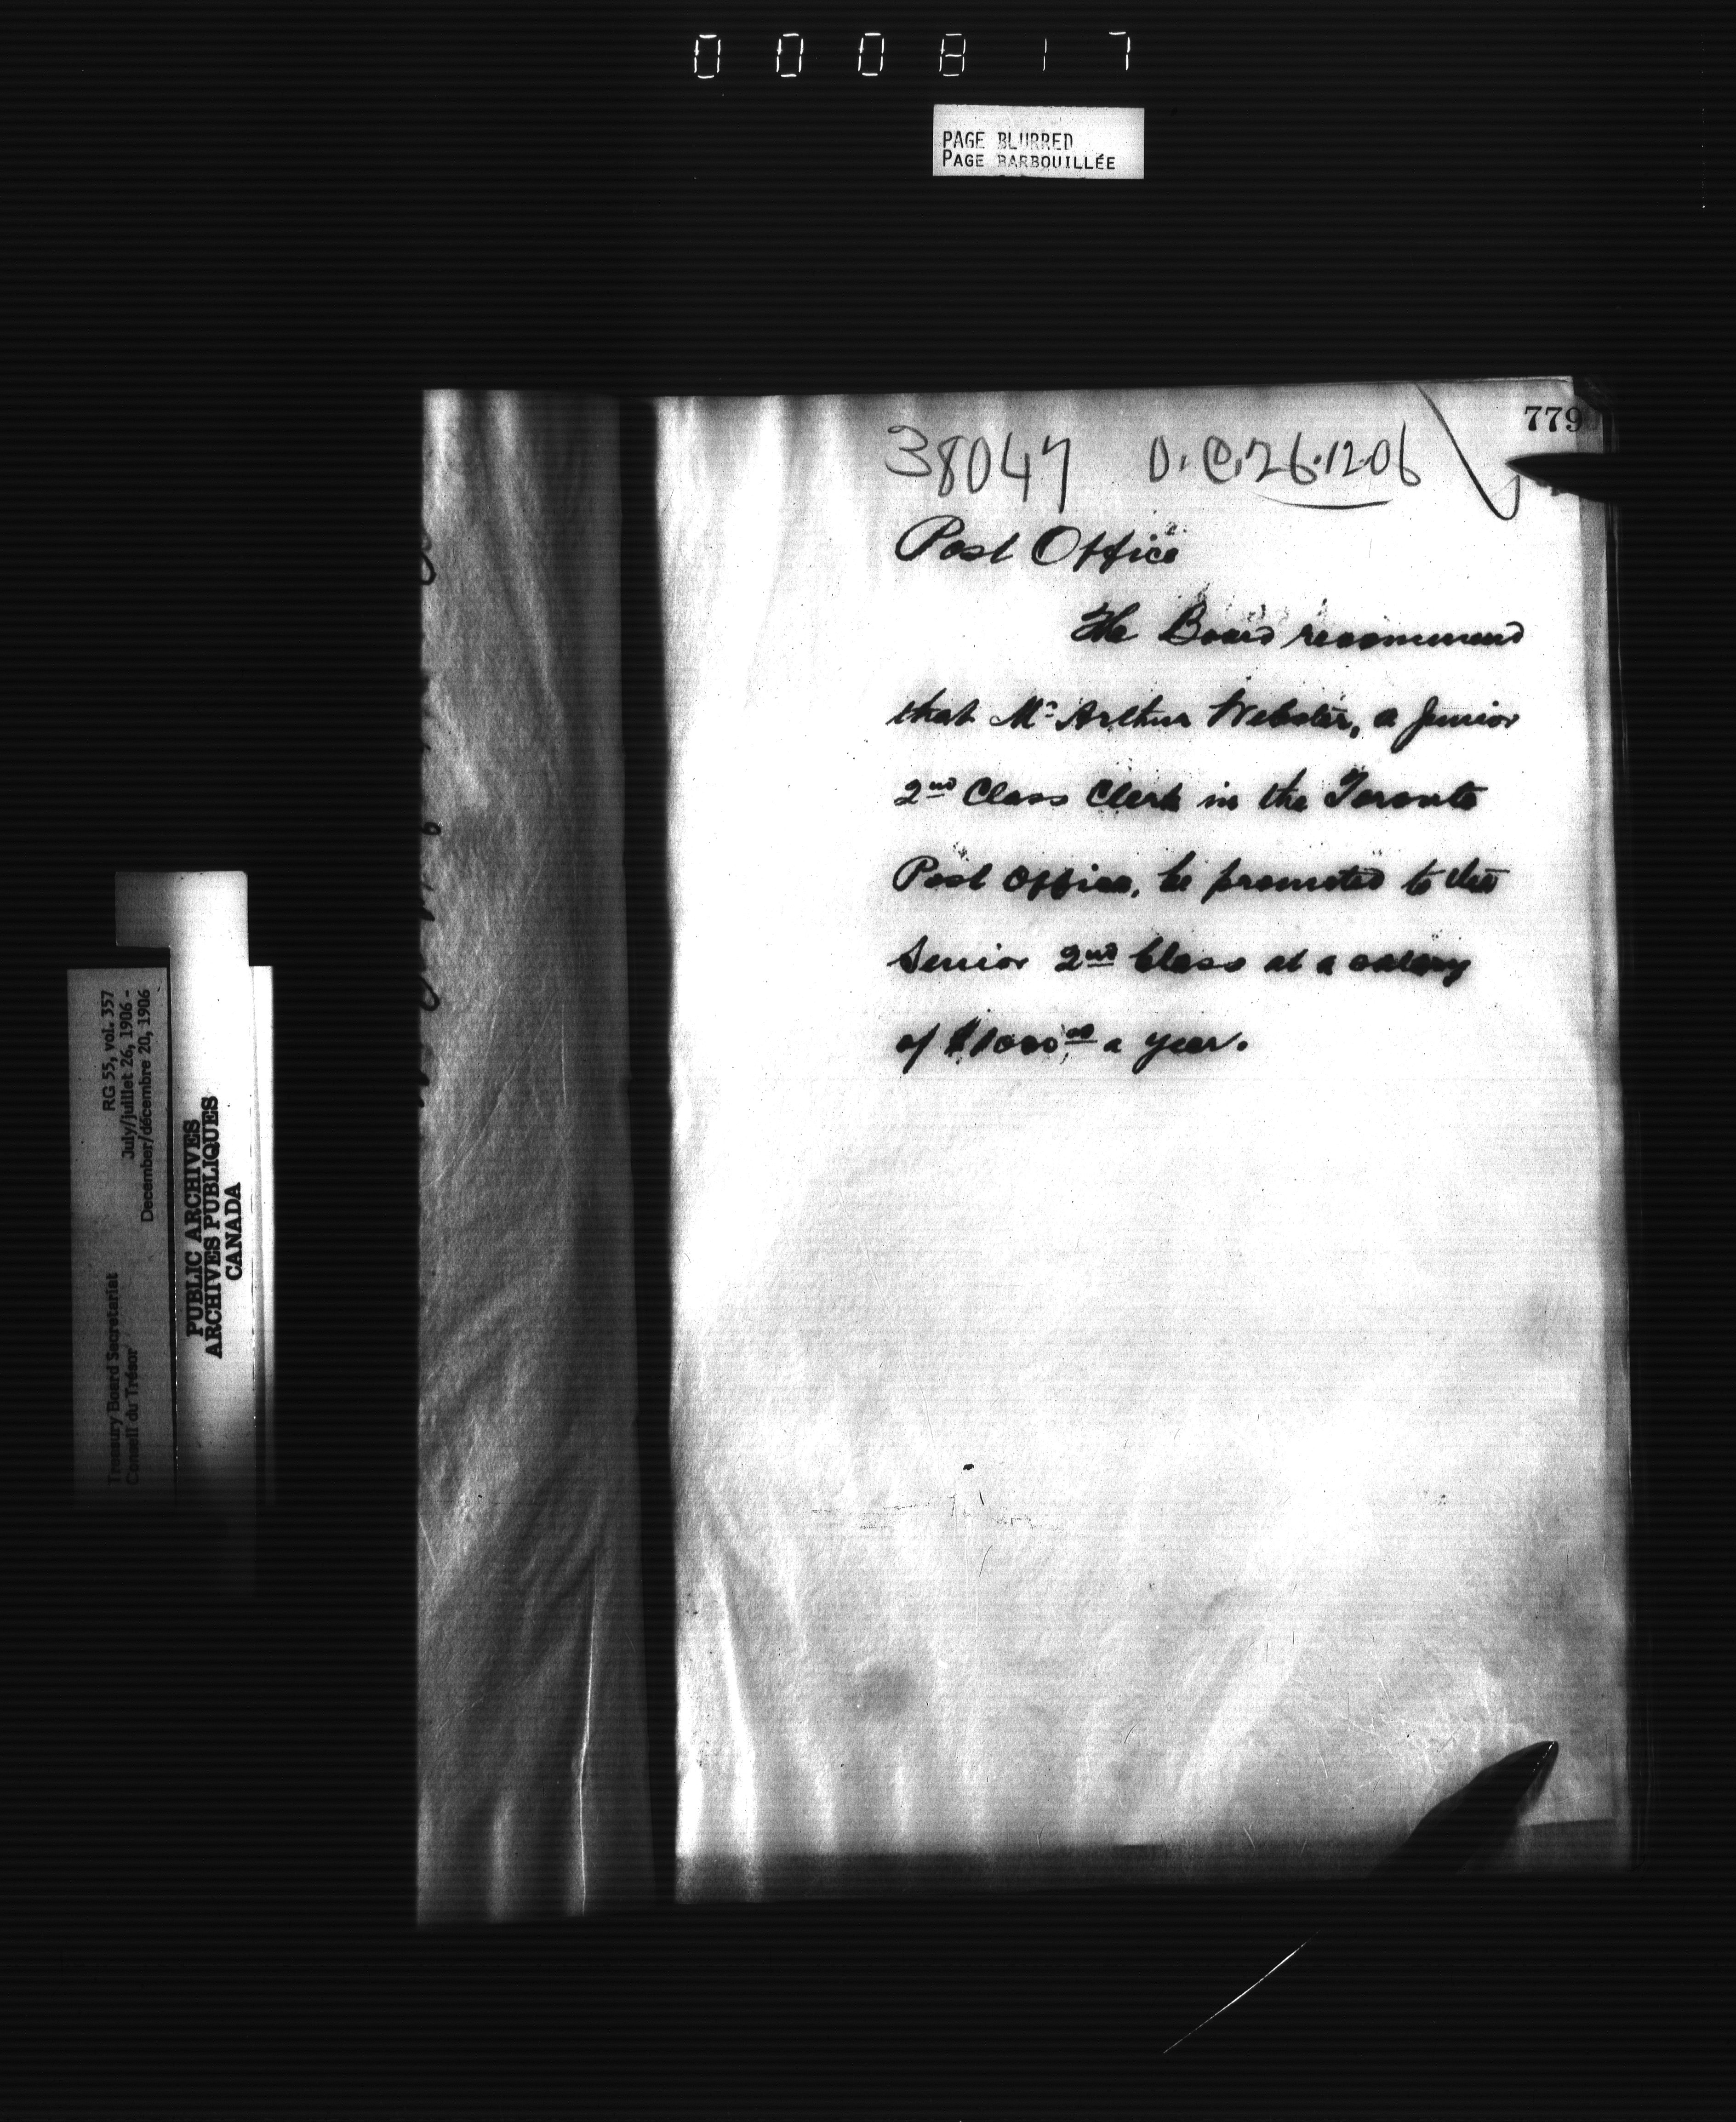 000817
PAGE BLURRED
PAGE BARBOUILLÉE
779
38047 O.C. 26.12.06
Post Office
The Board recommend
that Mr Arthur Webster, a Junior
2nd Class Clerk in the Toronto
Post Office, be promoted to the
Senior 2nd Class at a salary
of $1000 00 a year.
Treasury Board Secretariat RG 55, vol. 357
Conseil du Trésor July/juillet 26, 1906 -
December/décembre 20, 1906
PUBLIC ARCHIVES
ARCHIVES PUBLIQUES
CANADA